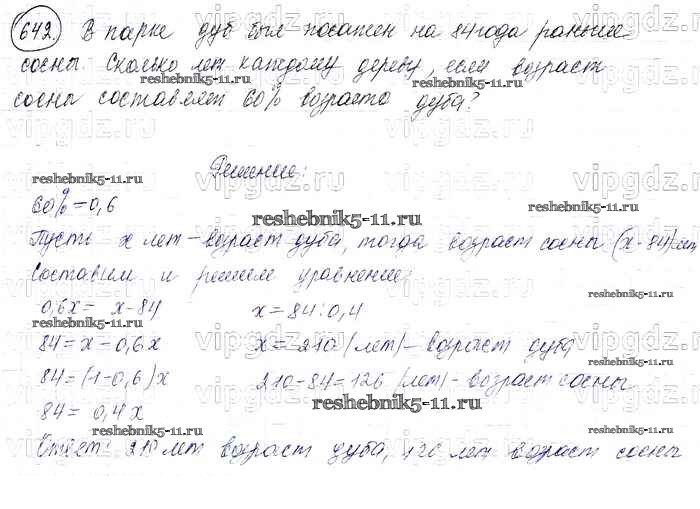 642. В парке дуб был посажен на 84 года раньше
сосны. Сколько лет каждому дереву, если возраст
сосны составляет 60% возраста дуба?
Решение:
60% = 0,6
Пусть x лет – возраст дуба, тогда возраст сосны (x-84) лет
Составим и решим уравнение:
0,6x = x-84
x = 84:0,4
84 = x-0,6x
x = 210 (лет) – возраст дуба
84 = (1-0,6)x
210-84=126 (лет) – возраст сосны
84 = 0,4x
Ответ: 210 лет возраст дуба, 126 лет возраст сосны
reshebnik5-11.ru
vipgdz.ru